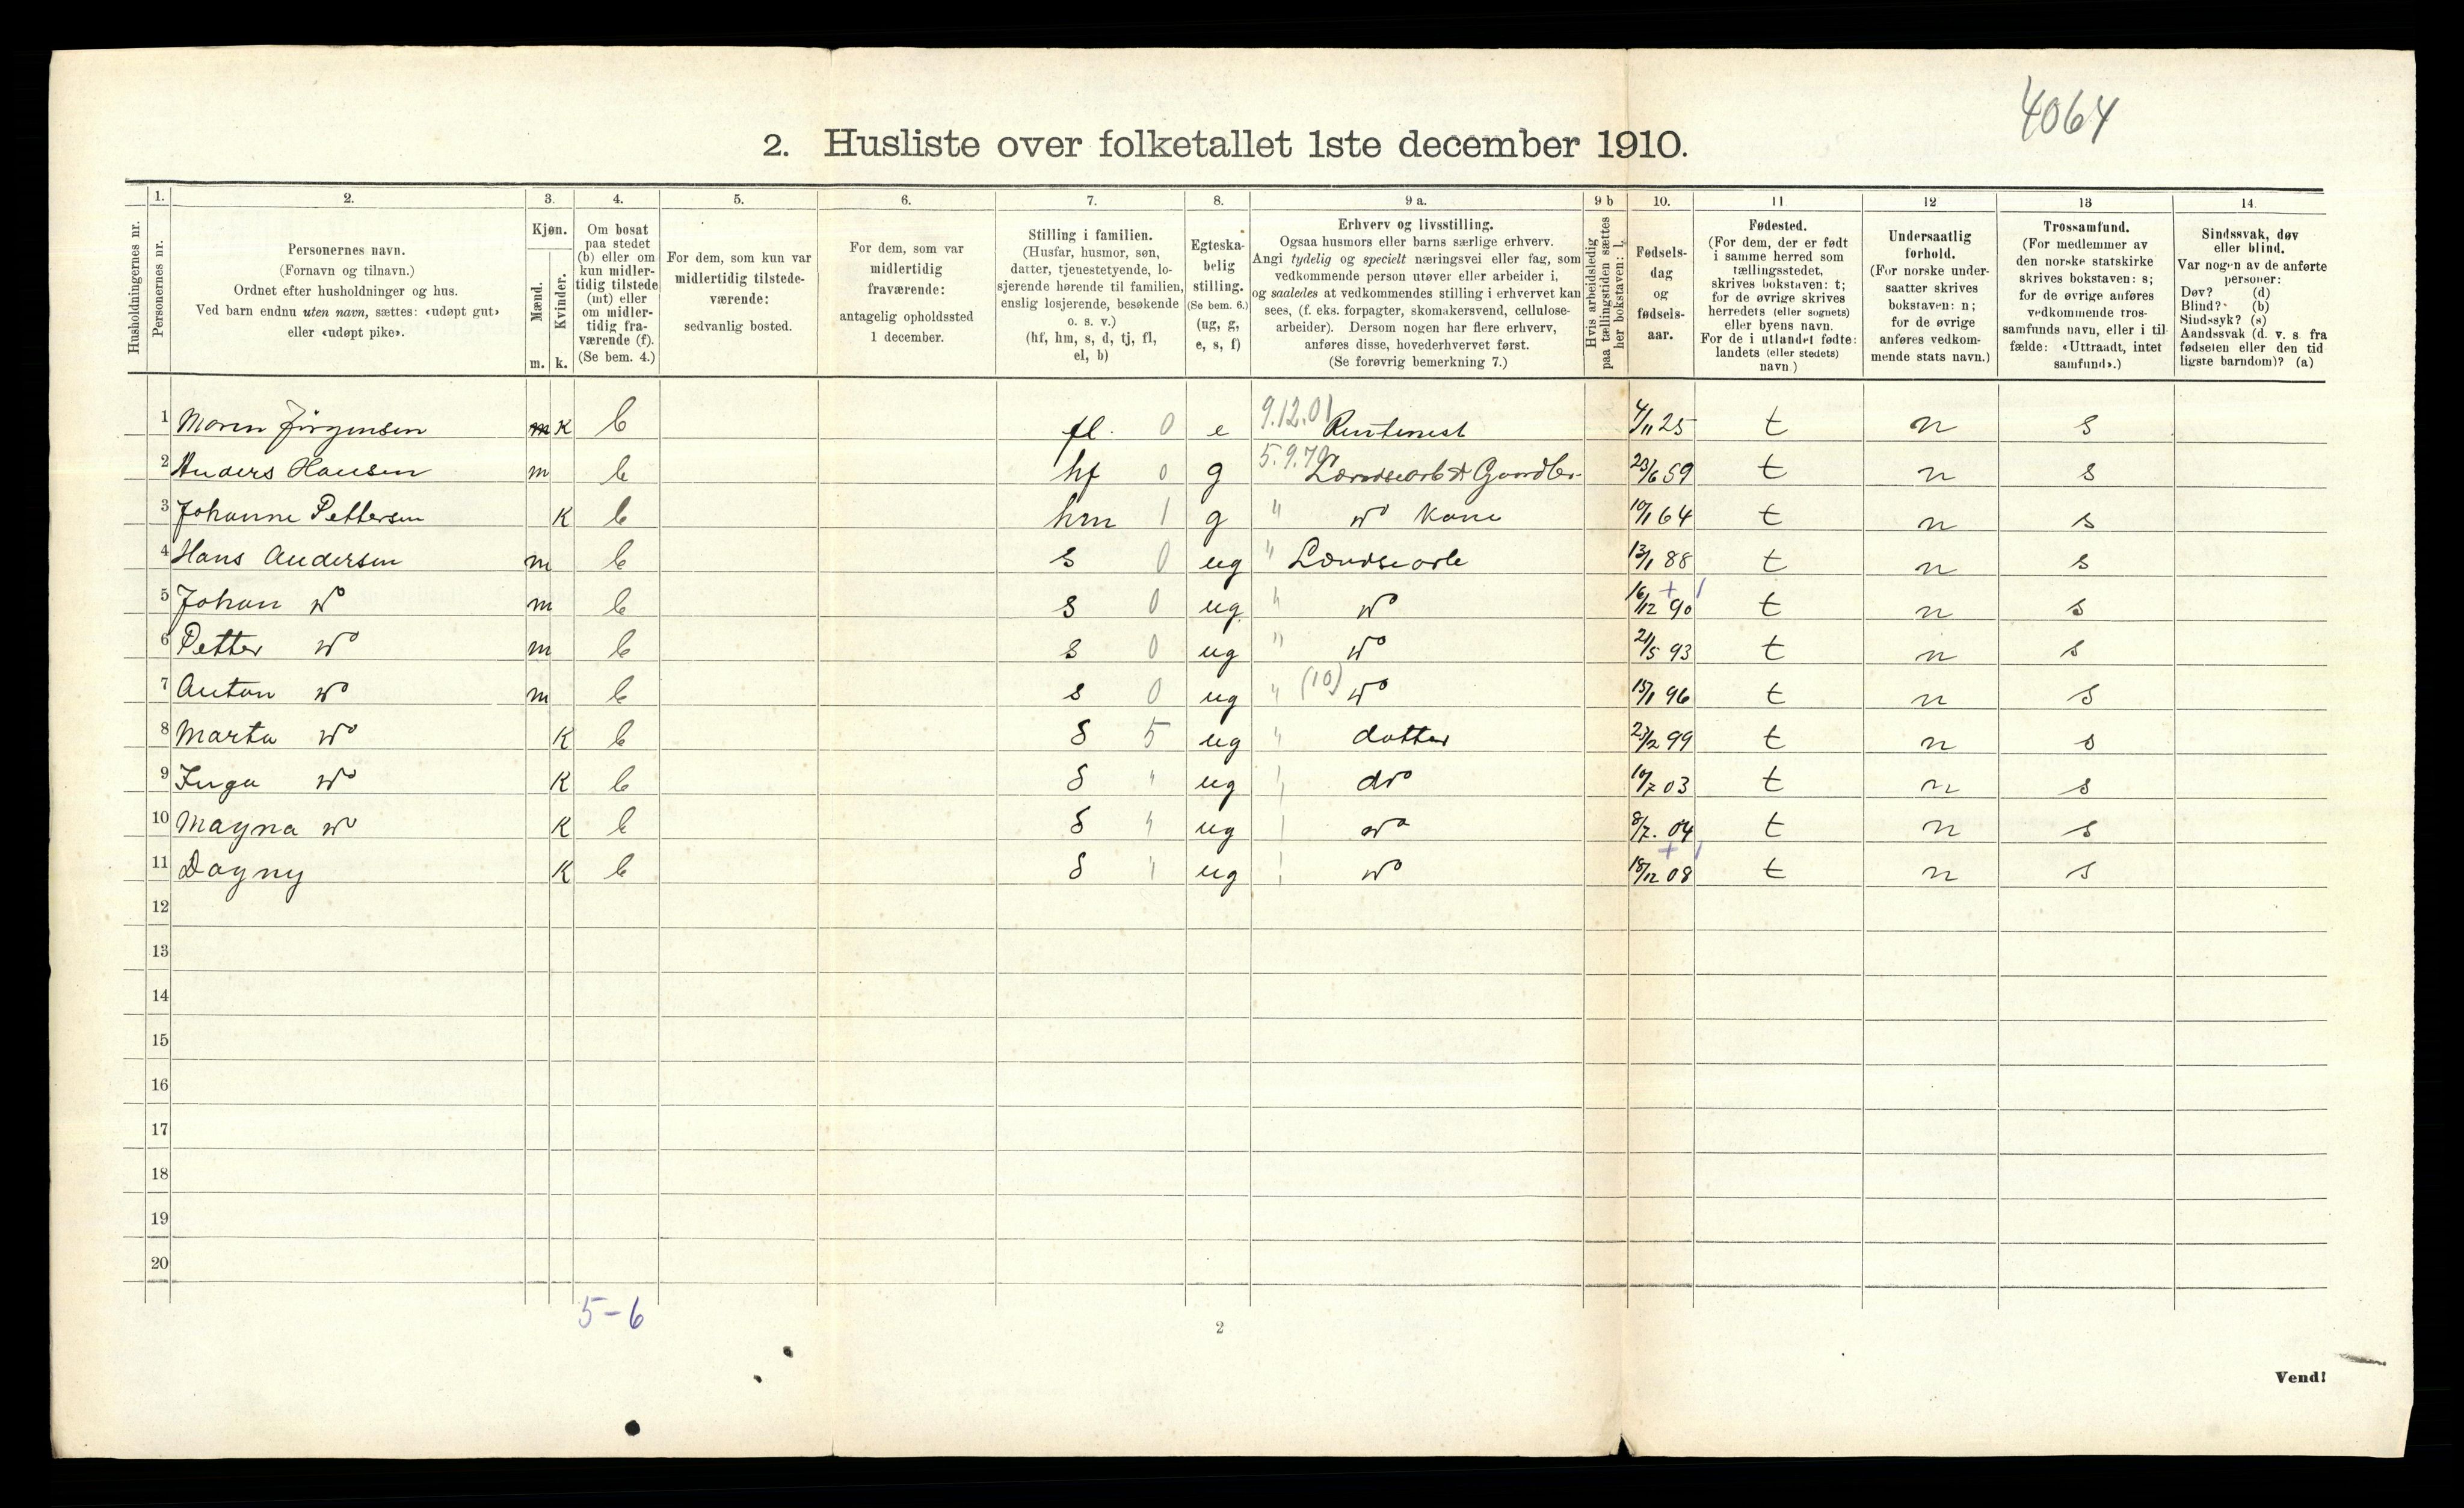 4064
2. Husliste over folketallet 1ste december 1910.
1. 2. 3. 4. 5. 6. 7. 8. 9 a. 9 b 10. 11 12 13 14
Husholdningernes nr.
Personernes nr.
Personernes navn.
(Fornavn og tilnavn.)
Ordnet efter husholdninger og hus.
Ved barn endnu uten navn, sættes: «udøpt gut»
eller «udøpt pike».
Kjøn.
Mænd.
Kvinder.
m. k.
Om bosat
paa stedet
(b) eller om
kun midler-
tidig tilstede
(mt) eller
om midler-
tidig fra-
værende (f).
(Se bem. 4.)
For dem, som kun var
midlertidig tilstede-
værende:
sedvanlig bosted.
For dem, som var
midlertidig
fraværende:
antagelig opholdssted
1 december.
Stilling i familien.
(Husfar, husmor, søn,
datter, tjenestetyende, lo-
sjerende hørende til familien,
enslig losjerende, besøkende
o. s. v.)
(hf, hm, s, d, tj, fl,
el, b)
Egteska-
belig
stilling.
(Se bem. 6.)
(ug, g,
e, s, f)
Erhverv og livsstilling.
Ogsaa husmors eller barns særlige erhverv.
Angi tydelig og specielt næringsvei eller fag, som
vedkommende person utøver eller arbeider i,
og saaledes at vedkommendes stilling i erhvervet kan
sees, (f. eks. forpagter, skomakersvend, cellulose-
arbeider). Dersom nogen har flere erhverv,
anføres disse, hovederhvervet først.
(Se forøvrig bemerkning 7.)
Hvis arbeidsledig
paa tællingstiden sættes
her bokstaven: l.
Fødsels-
dag
og
fødsels-
aar.
Fødested.
(For dem, der er født
i samme herred som
tællingsstedet,
skrives bokstaven: t;
for de øvrige skrives
herredets (eller sognets)
eller byens navn.
For de i utlandet fødte:
landets (eller stedets)
navn.)
Undersaatlig
forhold.
(For norske under-
saatter skrives
bokstaven: n;
for de øvrige
anføres vedkom-
mende stats navn.)
Trossamfund.
(For medlemmer av
den norske statskirke
skrives bokstaven: s;
for de øvrige anføres
vedkommende tros-
samfunds navn, eller i til-
fælde: «Uttraadt, intet
samfund».)
Sindssvak, døv
eller blind.
Var nogen av de anførte
personer:
Døv? (d)
Blind? (b)
Sindssyk? (s)
Aandssvak (d. v. s. fra
fødselen eller den tid-
ligste barndom)? (a)
1 Maren Jörgensen m K b fl. 0 e 9.12.01 4/11 25 t n s
2 Anders Hansen m b hf 0 g 5.9.70 23/6 59 t n s
3 Johanne Pettersen K b hm 1 g " do Kone 10/1 64 t n s
4 Hans Andersen m b s 0 ug " 13/1 88 t n s
5 Johan do m b s 0 ug " do 16/12 90 t n s
6 Petter do m b s 0 ug " do 21/5 93 t n s
7 Anton do m b s 0 ug " (10) do 15/1 96 t n s
8 Marta do K b d 5 ug " datter 99 t n s
9 Inga do K b d " ug do 10/7 03 t n s
10 Magna do K b d " ug do 8/7. 04 t n s
11 Dagny K b d " ug do 18/12 08 t n s
12
13
14
15
16
17
18
19
20
5-6
2
Vend!